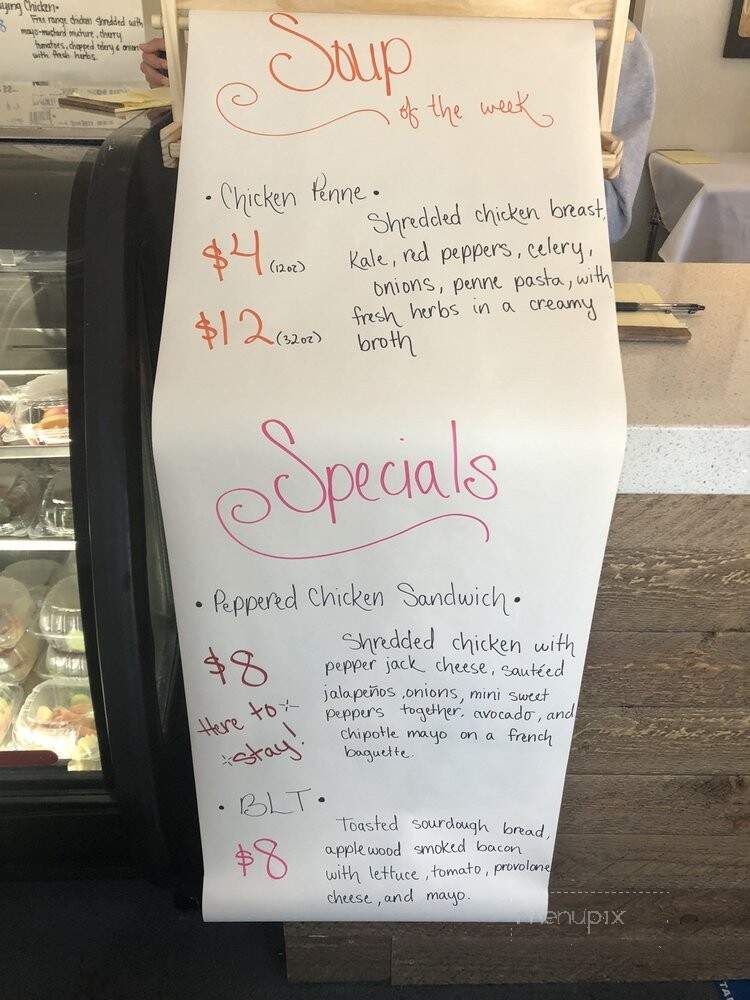 Chicken•
Free range chicken shredded with
mayo-mustard mixture, cherry
tomatoes, chopped celery & onions
with fresh herbs.
Soup
of the week
• Chicken Penne •
$4 (12oz)
$12 (32oz)
Shredded chicken breast,
kale, red peppers, celery,
onions, penne pasta, with
fresh herbs in a creamy
broth
Specials
• Peppered Chicken Sandwich •
$8
Here to
stay!
Shredded chicken with
pepper jack cheese, sautéed
jalapeños, onions, mini sweet
peppers together. avocado, and
chipotle mayo on a french
baguette.
• BLT •
$8
Toasted sourdough bread,
applewood smoked bacon
with lettuce, tomato, provolone
cheese, and mayo.
menupix